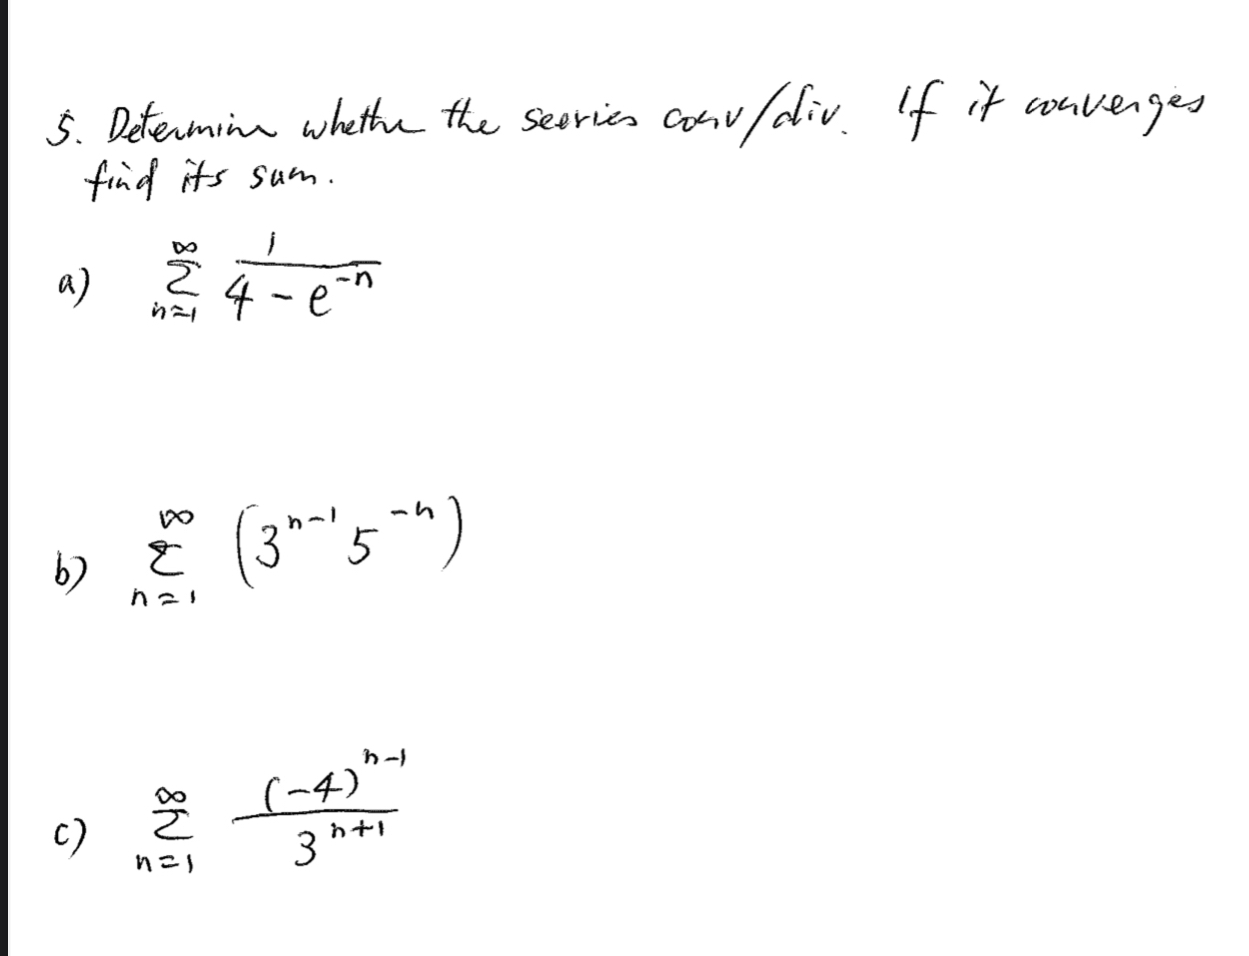 5. Determine whether the seeries conv/div. If it converges
find its sum.
a) ∑_{n=1}^{∞} 1/(4 - e^{-n})
b) ∑_{n=1}^{∞} (3^{n-1} 5^{-n})
c) ∑_{n=1}^{∞} (-4)^{n-1}/3^{n+1}